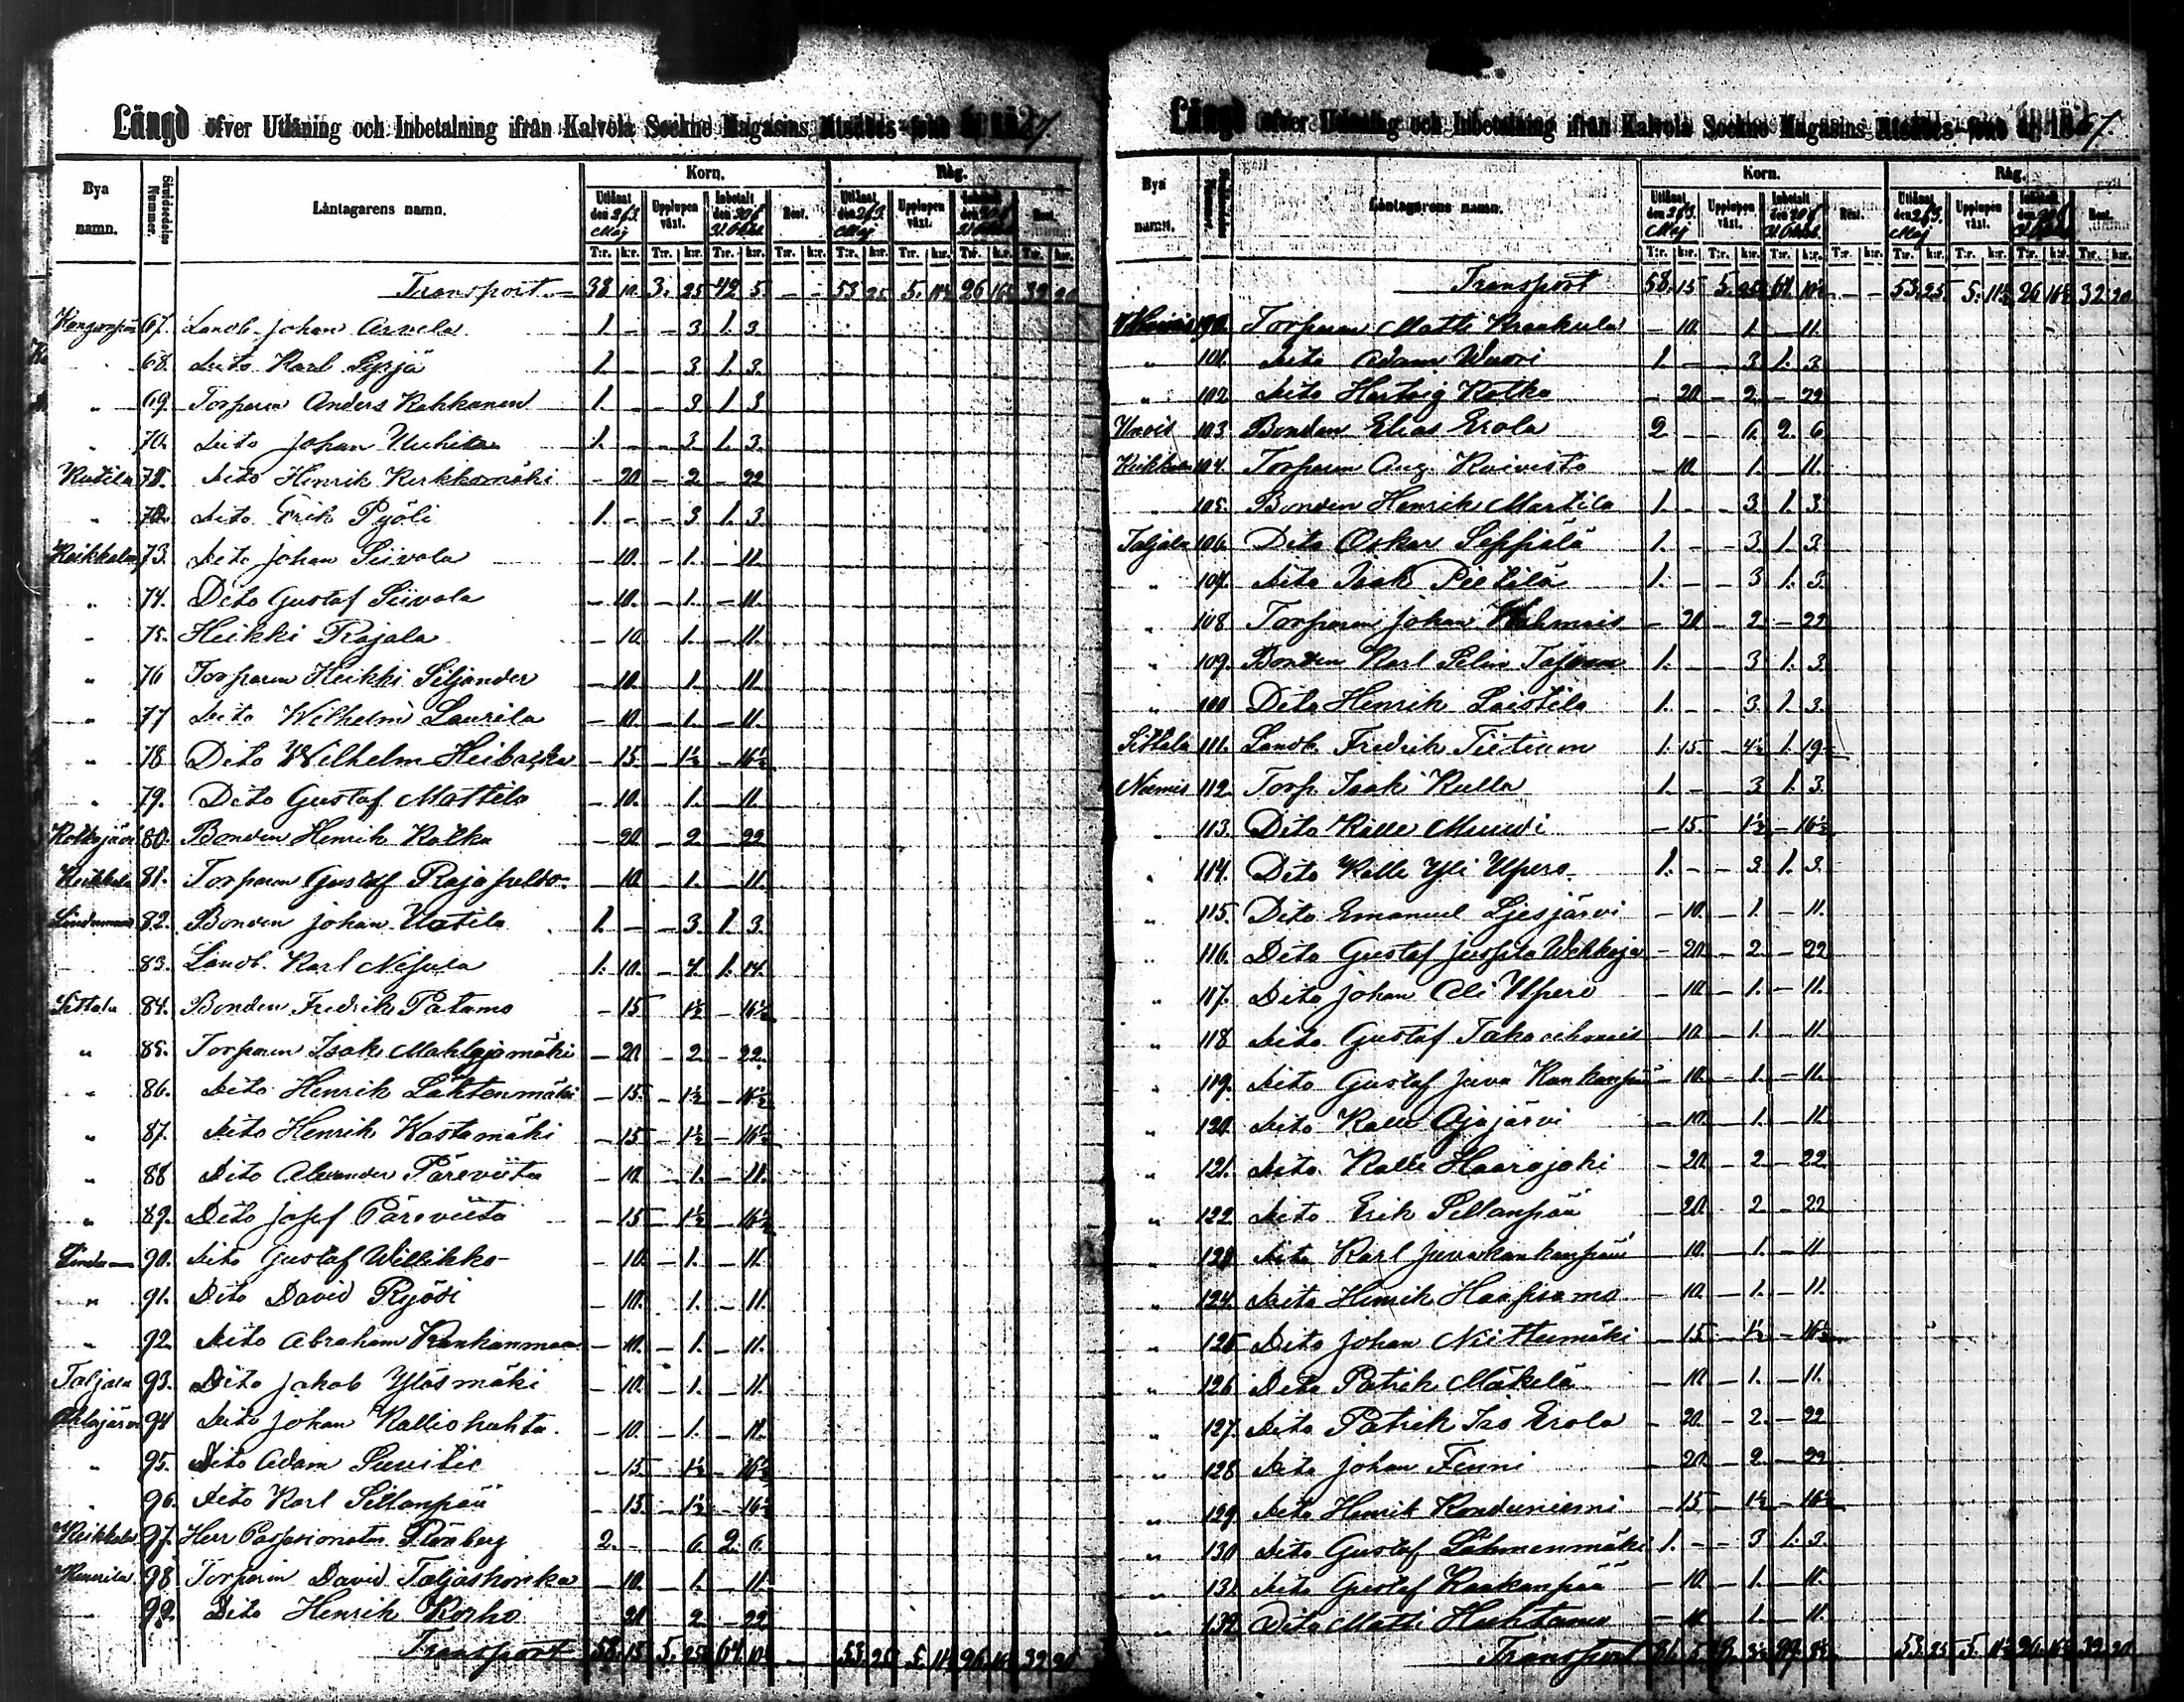 Längd öfver Utlåning och Inbetalning ifrån Kalvola Sockne Magasins
Bya namn. Låntagarens namn. Korn. Råg.
Utlånat den 26 Maj Upplupen växt. Inbetalt Rest. Utlånat den 26 Maj Upplupen växt. Rest.
T:r. k:r. T:r. k:r. T:r. k:r. T:r. k:r. T:r. k:r. T:r. k:r. T:r. k:r. T:r. k:r.
Transport 38 10. 3. 25 42 5. - - 53 25 5. 11½ 26 16½ 32 20
67. Landb. Johan Arvela 1. - - 3. 1. 3
" 68. Dito Karl Syrjä 1. - - 3. 1. 3.
" 69. Torparen Anders Kahkonen 1. - - 3 1. 3
" 70. Dito Johan 1. - - 3. 1. 3.
Kutila Dito Henrik Kerkkomäki - 20 - 2 - 22
" 72. Dito Erik Pyöli 1. - - 3 1. 3
Keikkala 73. Dito Johan Siivola - 10. - 1. - 11.
" 74. Dito Gustaf Siivola - 10. - 1. - 11.
" 75. Heikki Rajala - 10. 1. - 11.
" 76 Torparen Heikki Siljander - 10. 1. - 11.
" 77 Dito Wilhelm Laurila - 10. - 1. - 11.
" 78 Dito Wilhelm - 15. - 1½ - 16½
" 79. Dito Gustaf Mattila - 10. 1. - 11.
80. Bonden Henrik Kotka - 20 - 2 - 22
Keikkala 81. Torparen Gustaf Rajapelto - 10. - 1. - 11.
82. Bonden Johan Uotila 1. - - 3. 1. 3.
83. Landb. Karl 1. 10. - 4. 1. 14.
Sittala 84. Bonden Fredrik Patamo - 15 1½ - 16½
" 85. Torparen Isak - 20 - 2 - 22.
" 86. Dito Henrik Lähtenmäki - 15. - 1½ - 16½
" 87. Dito Henrik Kostamäki - 15 - 1½ - 16½
" 88 Dito Alexander Päreviita - 10. - 1. - 11.
" 89. Dito Josef Päreviita - 15 - 1½ - 16½
90. Dito Gustaf Willikko - 10. - 1. - 11.
" 91. Dito David Ryödi - 10. 1. - 11.
" 92. Dito Abraham Kankanmaa - 10. - 1. - 11.
Taljala 93. Dito Jakob Ylösmäki - 10. - 1. - 11.
94 Dito Johan Kalliohuhta. - 10. - 1. - 11.
" 95. Dito Adam - 15. - 1½ - 16½
" 96. Dito Karl Sillanpää - 15. - 1½ - 16½
Keikkala 97. Herr 2. - 6. 2. 6.
98 Torparen David - 10. - 1. - 11.
99. Dito Henrik Korho - 20 2. - 22
Transport 58. 15 5. 25½ 64 10½ - 53. 25 5. 11½ 26 16½ 32 20
Längd öfver Utlåning och Inbetalning ifrån Kalvola Sockne Magasins
Bya namn. Låntagarens namn. Korn. Råg.
Utlånat den 26 Maj Upplupen växt. Inbetalt Rest. Utlånat den 26 Maj Upplupen växt. Rest.
T:r. k:r. T:r. k:r. T:r. k:r. T:r. k:r. T:r. k:r. T:r. k:r. T:r. k:r. T:r. k:r.
Transport 58. 15 5. 25½ 64 10½ - - 53. 25. 5. 11½ 26 16½ 32 20
100. Torparen Matti Kraakula - 10. - 1. - 11.
" 101. Dito Adam Wuori 1. - - 3 1. 3
" 102. Dito Hartvig Kotka - 20 - 2. - 22
103. Bonden Elias Erola 2. - - 6. 2. 6
Keikkala 104. Torparen Aug. Koivisto - 10. - 1. - 11.
105. Bonden Henrik Martila 1. - - 3. 1. 3.
Taljala 106. Dito Oskar Seppälä 1. - - 3. 1. 3.
" 107. Dito Isak Pietilä 1. - - 3 1. 3.
" 108 Torparen Johan - 20 - 2 - 22
" 109. Bonden Karl 1. - - 3 1. 3
" Dito Henrik Laistila 1. - - 3. 1. 3.
Sittala 111. Landb. Fredrik 1. 15. - 4½ 1. 19½
Niemis 112. Torp. Isak Kulla 1. - - 3 1. 3.
" 113. Dito Kalle - 15. 1½ - 16½
" 114. Dito Kalle Yli Upero 1. - - 3 1. 3.
" 115. Dito Emanuel - 10. - 1. - 11.
" 116. Dito Gustaf - 20 - 2 - 22
" 117. Dito Johan Ali Upero - 10 - 1. - 11.
" 118. Dito Gustaf - 10. - 1. - 11.
" 119. Dito Gustaf - 10. - 1. - 11.
" 120. Dito Kalle Ojajärvi - 10. - 1. - 11.
" 121. Dito Kalle Haarojoki - 20 - 2 - 22
" 122 Dito Erik Sillanpää - 20. 2 - 22
" 123 Dito Karl - 10. - 1. - 11
" 124. Dito Henrik Haapsamo - 10. - 1. - 11.
" 125 Dito Johan Niittumäki - 15 - 1½ - 16½
" 126 Dito Patrik Mäkelä - 10 - 1. - 11.
" 127. Dito Patrik Iso Erola - 20. - 2. - 22
" 128. Dito Johan Finni - 20 - 2. - 22
" 129. Dito Henrik - 15 - 1½ - 16½
" 130 Dito Gustaf 1. - - 3 1. 3.
" 131. Dito Gustaf - 10. - 1. - 11.
" 132. Dito Matti Huhtamo - 10 - 1. - 11.
Transport 53. 25 5. 11½ 26. 16½ 32 20